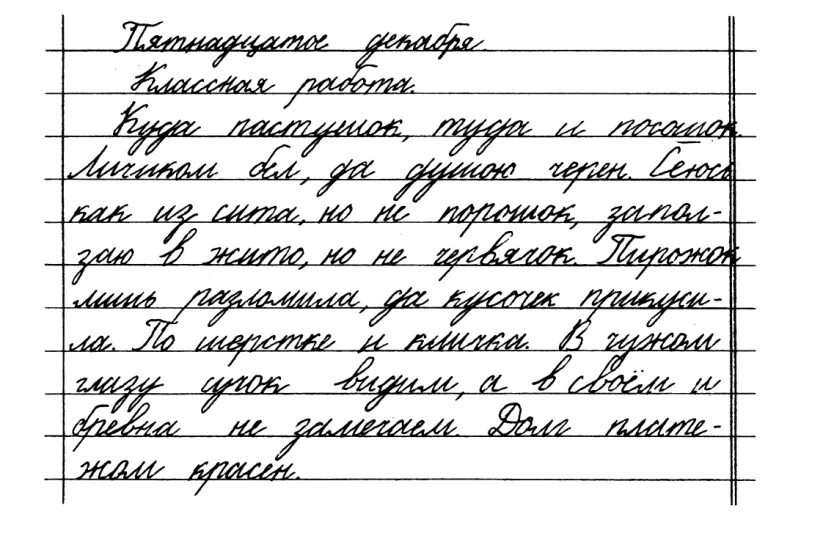 Пятнадцатое декабря.
Классная работа.
Куда пастушок, туда и посошок.
Личиком бел, да душою черен. Сеюсь
как из сита, но не порошок, запол-
заю в жито, но не червячок. Пирожок
лишь разломила, да кусочек прикуси-
ла. По шерстке и кличка. В чужом
глазу сучок видим, а в своём и
бревна не замечаем. Долг плате-
жом красен.